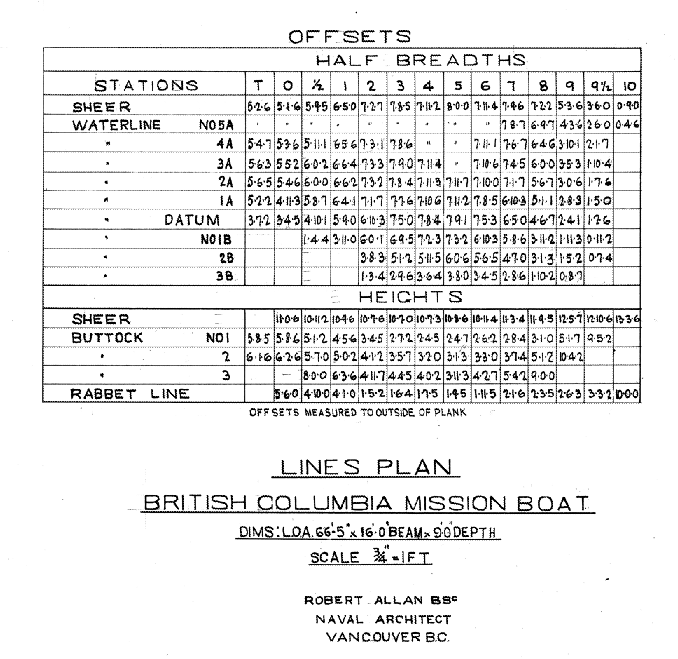 OFFSETS
HALF BREADTHS
STATIONS T 0 ½ 1 2 3 4 5 6 7 8 9 9½ 10
SHEER 5·2·6 5·1·6 5·9·5 6·5·0 7·2·7 7·8·5 7·11·2 8·0·0 7·11·4 7·9·6 7·2·2 5·3·6 3·6·0 0·9·0
WATERLINE NO5A " " " " " " " " " 7·8·7 6·9·7 4·3·6 2·6·0 0·4·6
" 4A 5·4·7 5·3·6 5·11·1 6·5·6 7·3·1 7·8·6 " " 7·11·1 7·6·7 6·4·6 3·10·1 2·1·7
" 3A 5·6·3 5·5·2 6·0·2 6·6·4 7·3·3 7·9·0 7·11·4 " 7·10·6 7·4·5 6·0·0 3·5·3 1·10·4
" 2A 5·6·5 5·4·6 6·0·0 6·6·2 7·3·2 7·8·4 7·11·3 7·11·7 7·10·0 7·1·7 5·6·7 3·0·6 1·7·6
" 1A 5·2·2 4·11·3 5·8·7 6·4·1 7·1·7 7·7·6 7·10·6 7·11·2 7·8·5 6·10·3 5·1·1 2·8·3 1·5·0
" DATUM 3·7·2 3·4·5 4·10·1 5·9·0 6·10·3 7·5·0 7·8·4 7·9·1 7·5·3 6·5·0 4·6·7 2·4·1 1·2·6
" NO1B 1·4·4 3·11·0 6·0·1 6·9·5 7·2·3 7·3·2 6·10·3 5·8·6 3·11·2 1·11·3 0·11·2
" 2B 3·8·3 5·1·2 5·11·5 6·0·6 5·6·5 4·7·0 3·1·3 1·5·2 0·7·4
" 3B 1·3·4 2·9·6 3·6·4 3·8·0 3·4·5 2·8·6 1·10·2 0·8·7
HEIGHTS
SHEER 11·0·6 10·11·2 10·9·6 10·7·6 10·7·0 10·7·3 10·8·6 10·11·4 11·3·4 11·9·5 12·5·7 12·10·6 13·3·6
BUTTOCK NO1 5·8·5 5·8·6 5·1·2 4·5·6 3·4·5 2·7·2 2·4·5 2·4·7 2·6·2 2·8·4 3·1·0 5·1·7 9·5·2
" 2 6·1·6 6·2·6 5·7·0 5·0·2 4·1·2 3·5·7 3·2·0 3·1·3 3·3·0 3·7·4 5·1·2 10·4·2
" 3 8·0·0 6·3·6 4·11·7 4·4·5 4·0·2 3·11·3 4·2·7 5·4·2 9·0·0
RABBET LINE 5·6·0 4·10·0 4·1·0 1·5·2 1·6·4 1·7·5 1·9·5 1·11·5 2·1·6 2·3·5 2·6·3 3·3·2 10·0·0
OFFSETS MEASURED TO OUTSIDE OF PLANK
LINES PLAN
BRITISH COLUMBIA MISSION BOAT
DIMS: L.O.A. 66'-5" x 16'-0" BEAM x 9'0" DEPTH
SCALE ¾" = 1 FT
ROBERT ALLAN BSc
NAVAL ARCHITECT
VANCOUVER B.C.